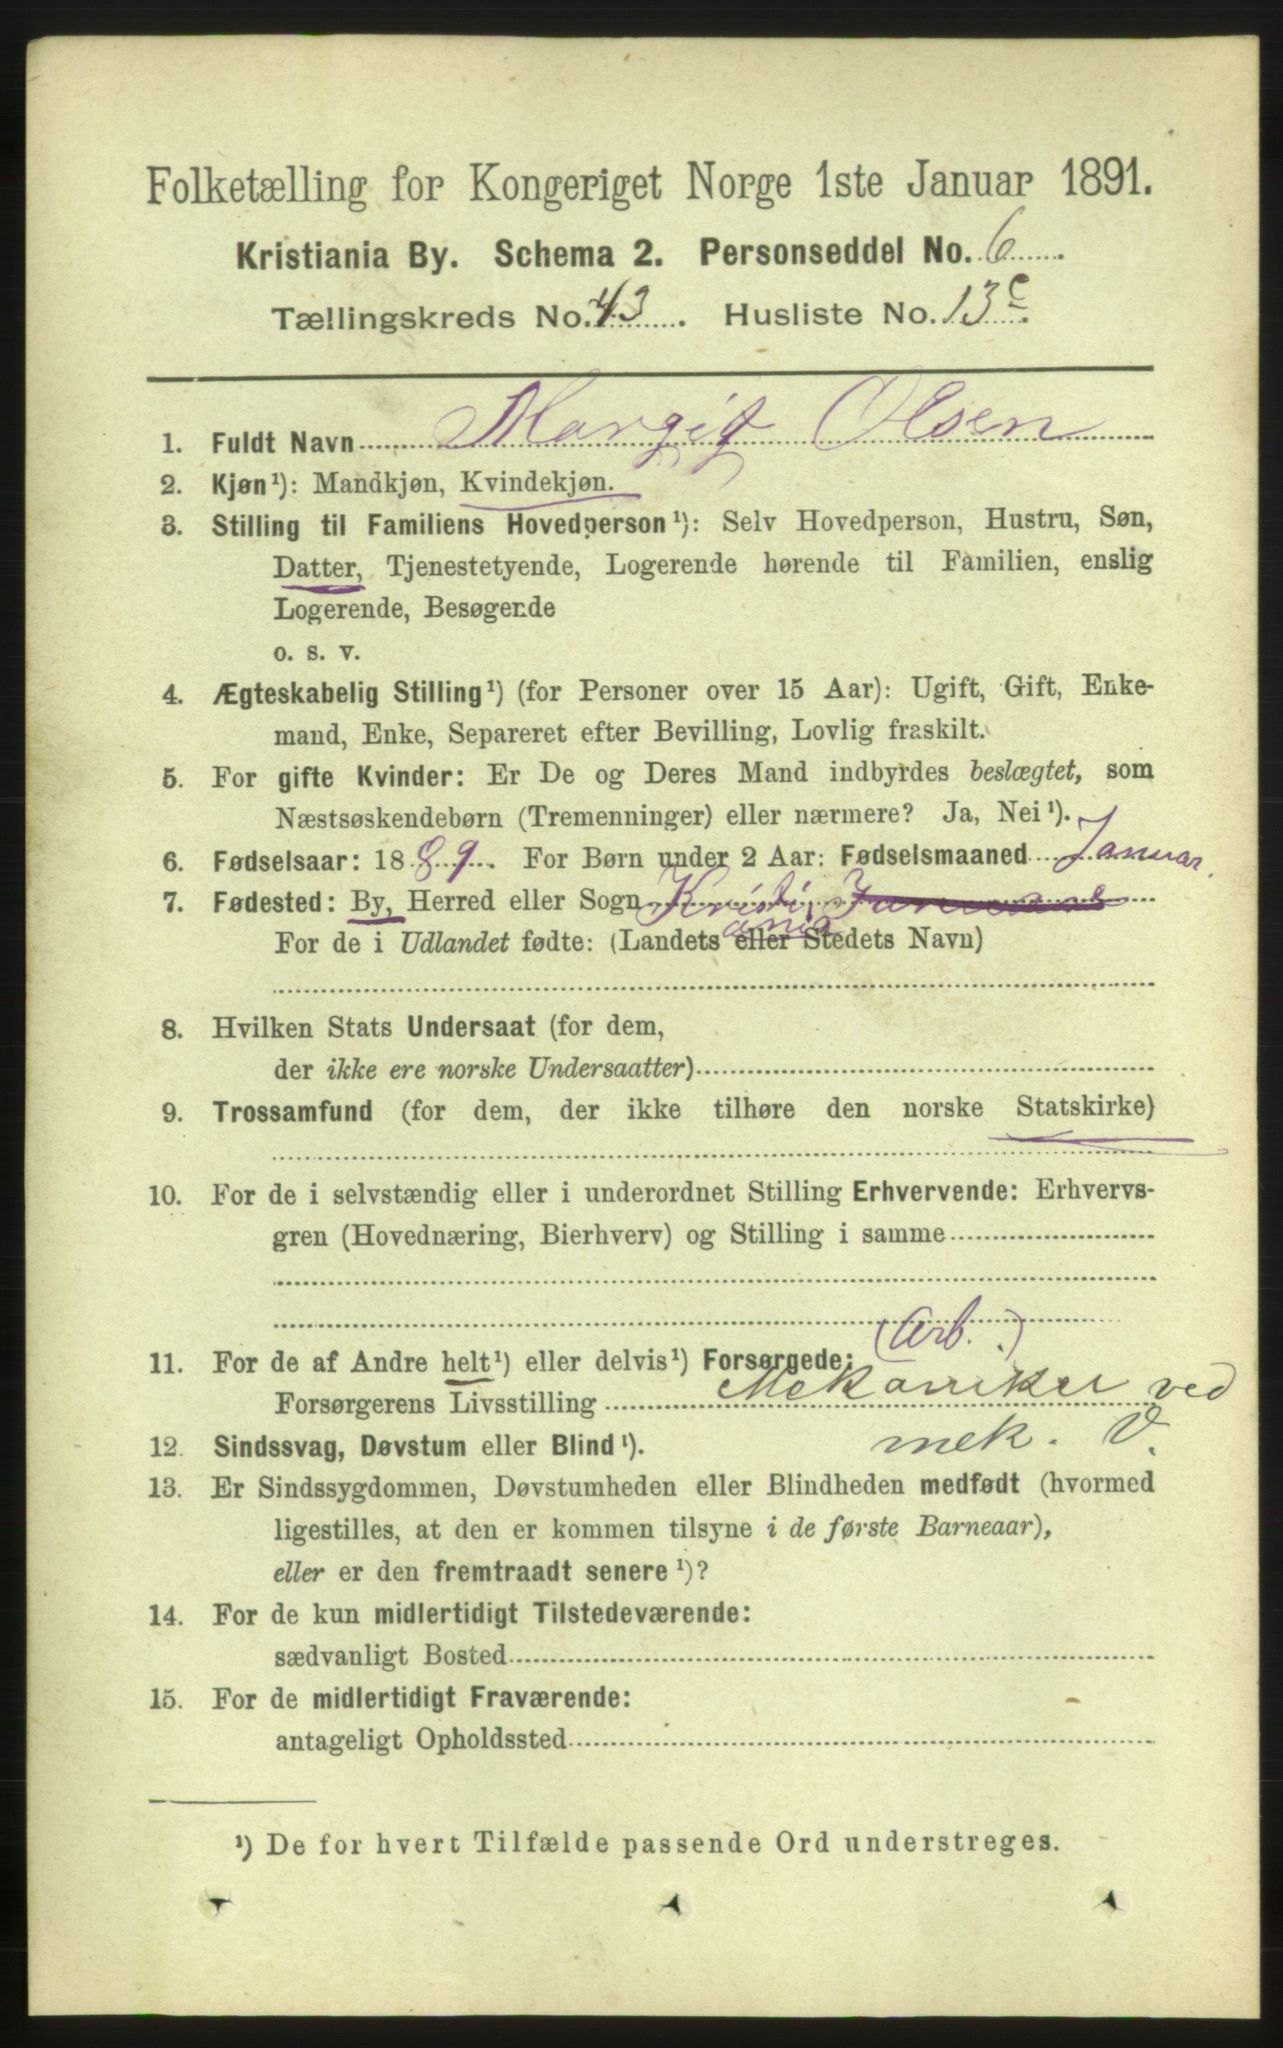 Folketælling for Kongeriget Norge 1ste Januar 1891.
Kristiania By. Schema 2. Personseddel No. 6
Tællingskreds No. 43. Husliste No. 13c
1. Fuldt Navn Margit Olsen
2. Kjøn¹): Mandkjøn, Kvindekjøn.
3. Stilling til Familiens Hovedperson¹): Selv Hovedperson, Hustru, Søn,
Datter, Tjenestetyende, Logerende hørende til Familien, enslig
Logerende, Besøgende
o. s. v.
4. Ægteskabelig Stilling¹) (for Personer over 15 Aar): Ugift, Gift, Enke-
mand, Enke, Separeret efter Bevilling, Lovlig fraskilt.
5. For gifte Kvinder: Er De og Deres Mand indbyrdes beslægtet, som
Næstsøskendebørn (Tremenninger) eller nærmere? Ja, Nei¹).
6. Fødselsaar: 1889. For Børn under 2 Aar: Fødselsmaaned Januar.
7. Fødested: By, Herred eller Sogn Kristi, Januar
ania
For de i Udlandet fødte: (Landets eller Stedets Navn)
8. Hvilken Stats Undersaat (for dem,
der ikke ere norske Undersaatter)
9. Trossamfund (for dem, der ikke tilhøre den norske Statskirke)
10. For de i selvstændig eller i underordnet Stilling Erhvervende: Erhvervs-
gren (Hovednæring, Bierhverv) og Stilling i samme
(Arb.)
11. For de af Andre helt¹) eller delvis¹) Forsørgede:
Forsørgerens Livsstilling Mekaniker ved
mek. V.
12. Sindssvag, Døvstum eller Blind¹).
13. Er Sindssygdommen, Døvstumheden eller Blindheden medfødt (hvormed
ligestilles, at den er kommen tilsyne i de første Barneaar),
eller er den fremtraadt senere¹)?
14. For de kun midlertidigt Tilstedeværende:
sædvanligt Bosted
15. For de midlertidigt Fraværende:
antageligt Opholdssted
¹) De for hvert Tilfælde passende Ord understreges.